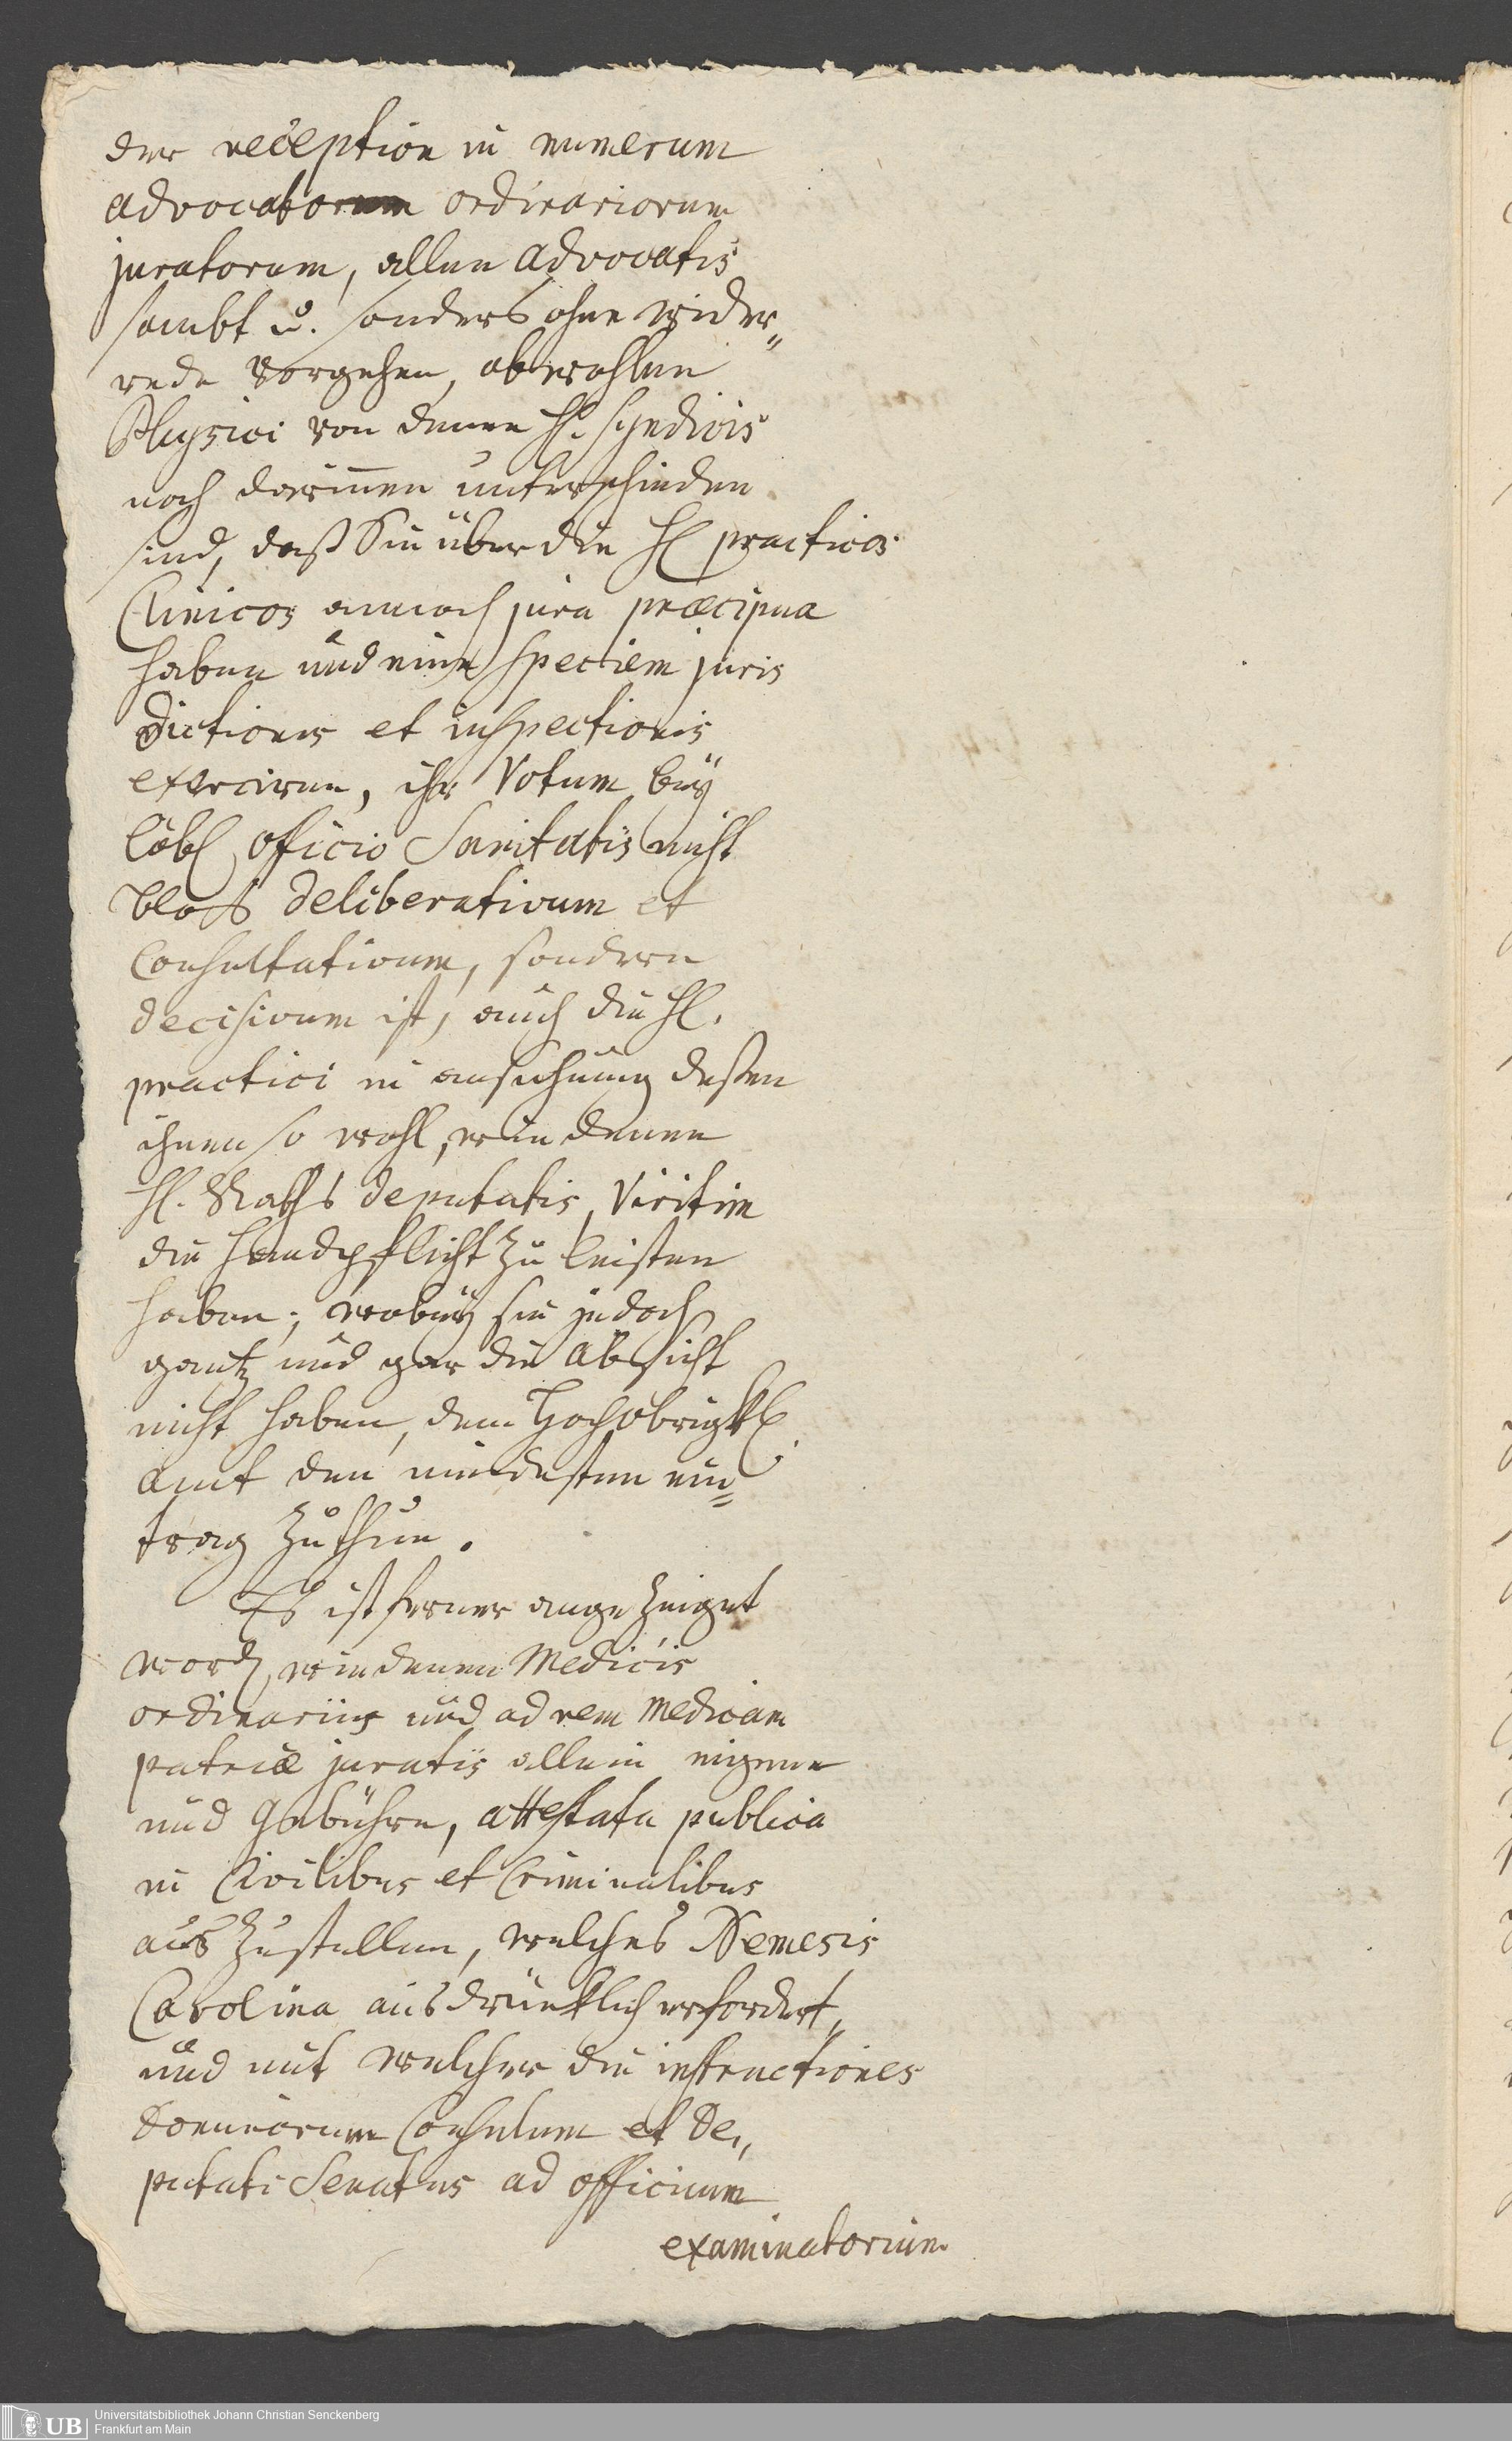 der reception in numerum
advocatorum ordinariorum
juratorum, allen advocatis
sambt u. sonders ohne wider„
rede vorgehen, obwohlen
Physici von denen H. Syndicis
noch darinnen unterschieden
sind, daß Sie über die H practicos
Clinicos annoch jura præcipua
haben und eine speciem juris
dictionis et inspectionis
exerciren, ihr Votum bey
löbl officio Sanitatis nicht
bloß deliberativum et
Consultativum, sondern
decisivum ist, auch die H.
practici in ansehung deßen
ihnen so wohl, wie denen
H. Raths deputatis, viritim
die Handpflicht zu leisten
haben; wobey sie jedoch
gantz und gar die absicht
nicht haben, dem Hochobrigkl
amt den mindesten ein=
trag zu thun.
Es ist ferner angezeiget
word, wie denen Medicis
ordinariis und ad rem medicam
patriæ juratis allein eigene
und Gebühre, attestata publica
in Civilibus et Criminalibus
auszustellen, welches Nemesis
Carolina ausdrücklich erfordert,
und mit welcher die instructiones
Dominorum Consulum et De„
putati Senatus ad officium
examinatorium
Universitätsbibliothek Johann Christian Senckenberg
Frankfurt am Main
UB